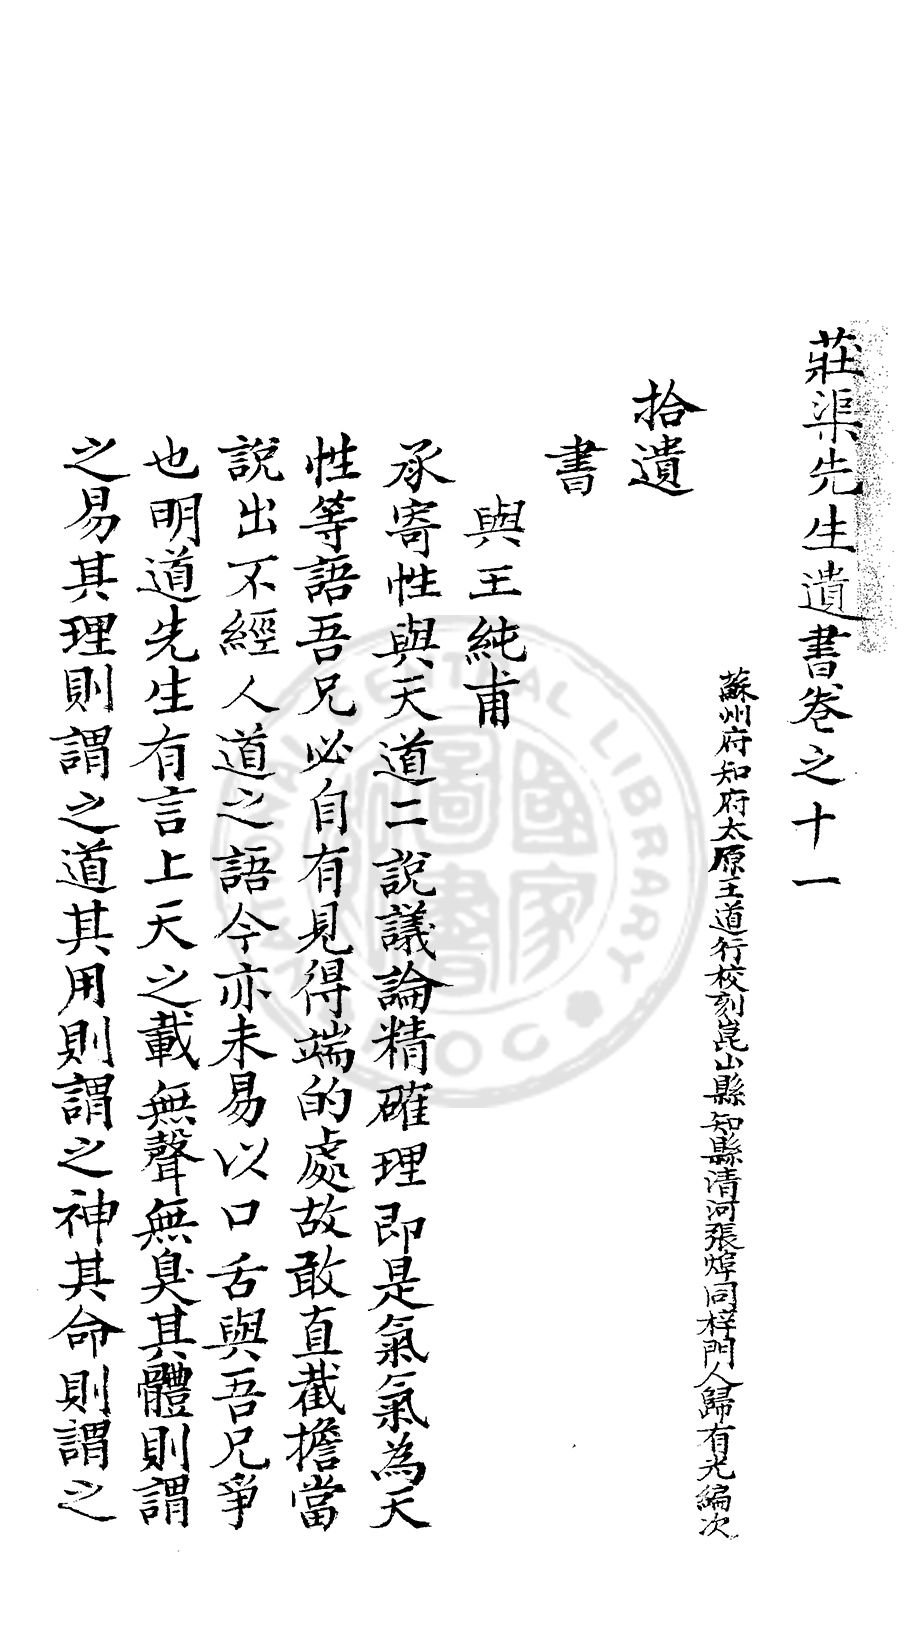 莊渠先生遺書卷之十一
蘇州府知府太原王道行校刻崑山縣知縣清河張焯同梓門人歸有光編次
拾遺
書
與王純甫
承寄性與天道二說議論精確理即是氣氣為天
性等語吾兄必自有見得端的處故敢直截擔當
說出不經人道之語今亦未易以口舌與吾兄爭
也明道先生有言上天之載無聲無臭其體則謂
之易其理則謂之道其用則謂之神其命則謂之
國家圖書
CENTRAL LIBRARY